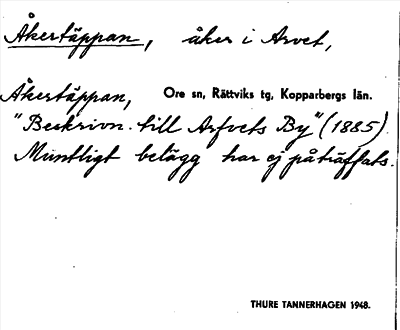 Åkertäppan, åker i Arvet,
Åkertäppan, Ore sn, Rättviks tg, Kopparbergs län.
"Beskrivn. till Arfvets By" (1885).
Muntligt belägg har ej påträffats.
THURE TANNERHAGEN 1948.